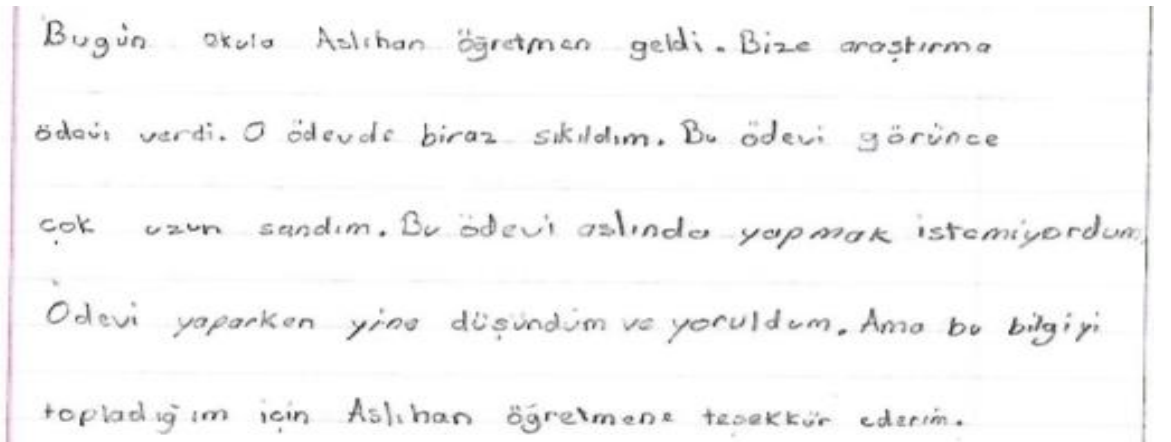 Bugün okula Aslıhan öğretmen geldi. Bize araştırma
ödevi verdi. O ödevde biraz sıkıldım. Bu ödevi görünce
çok uzun sandım. Bu ödevi aslında yapmak istemiyordum.
Ödevi yaparken yine düşündüm ve yoruldum. Ama bu bilgiyi
topladığım için Aslıhan öğretmene teşekkür ederim.